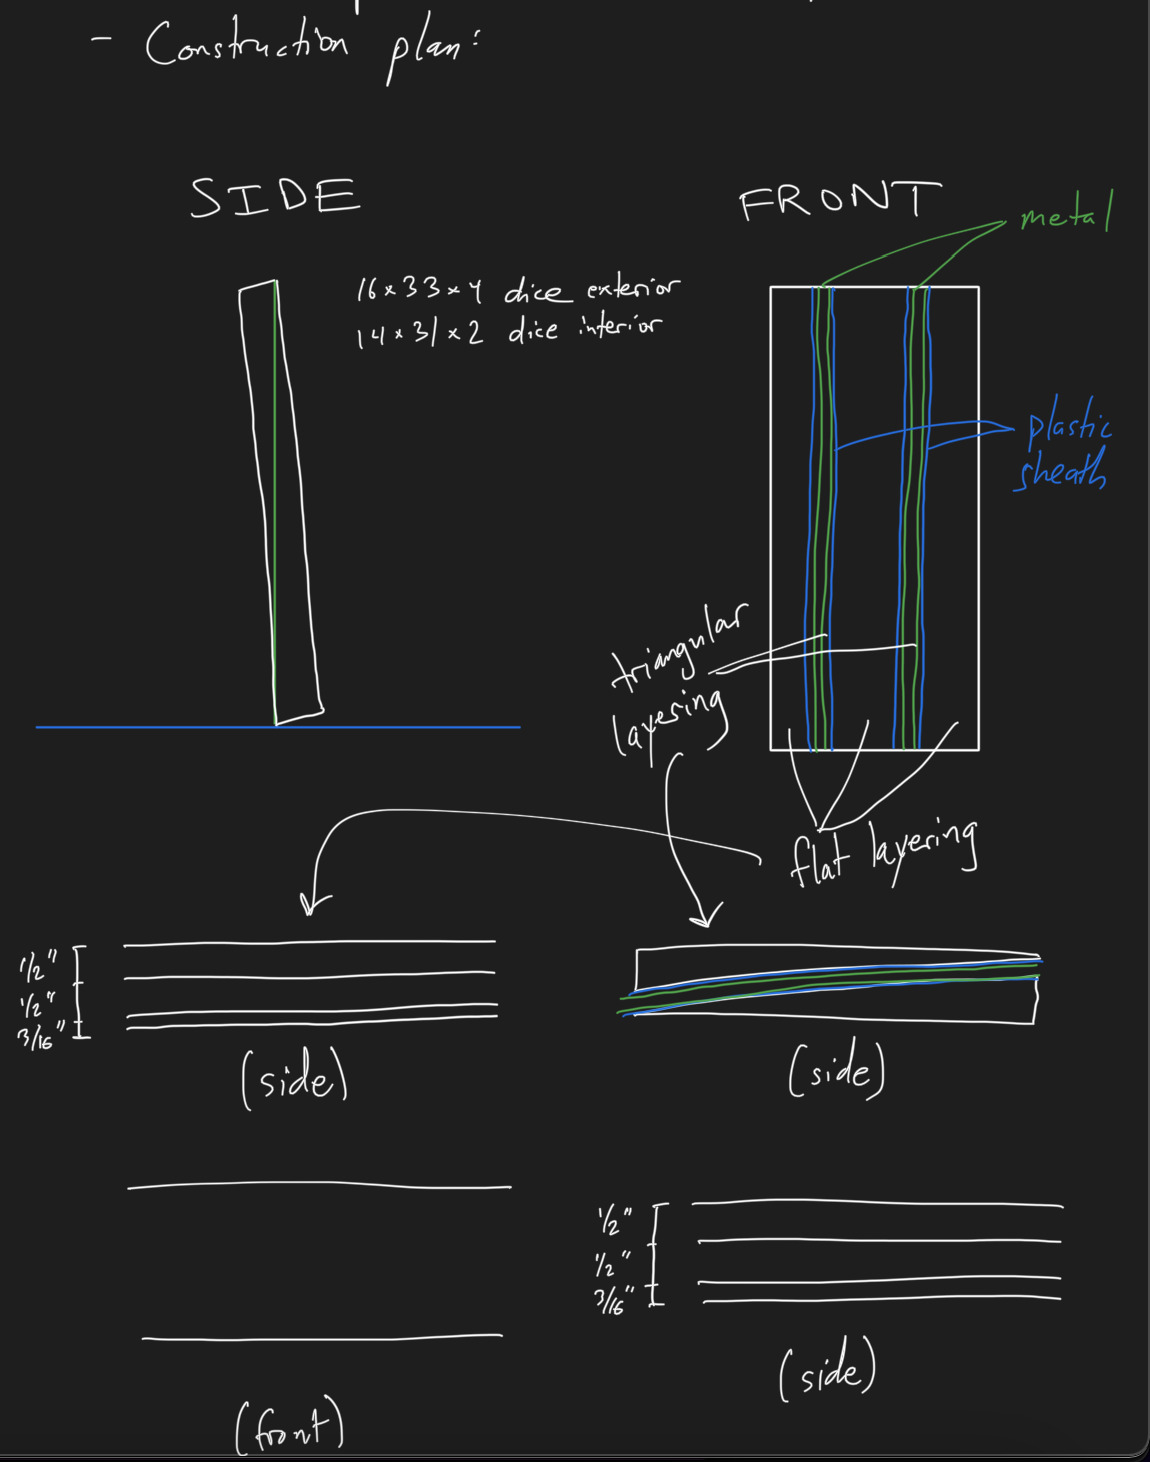 - Construction plan:
SIDE
FRONT
metal
16 x 33 x 4 dice exterior
14 x 31 x 2 dice interior
plastic
sheath
triangular
layering
flat layering
1/2"
1/2"
3/16"
(side)
(side)
1/2"
1/2"
3/16"
(side)
(front)